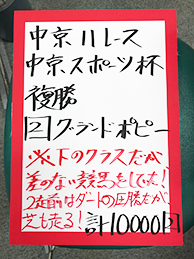 中京11レース
中京スポーツ杯
複勝
[2]グランドポピー
※下のクラスだが
差のない競馬をしてた!
2走前はダートの圧勝だが、
芝もたる! 計10000円